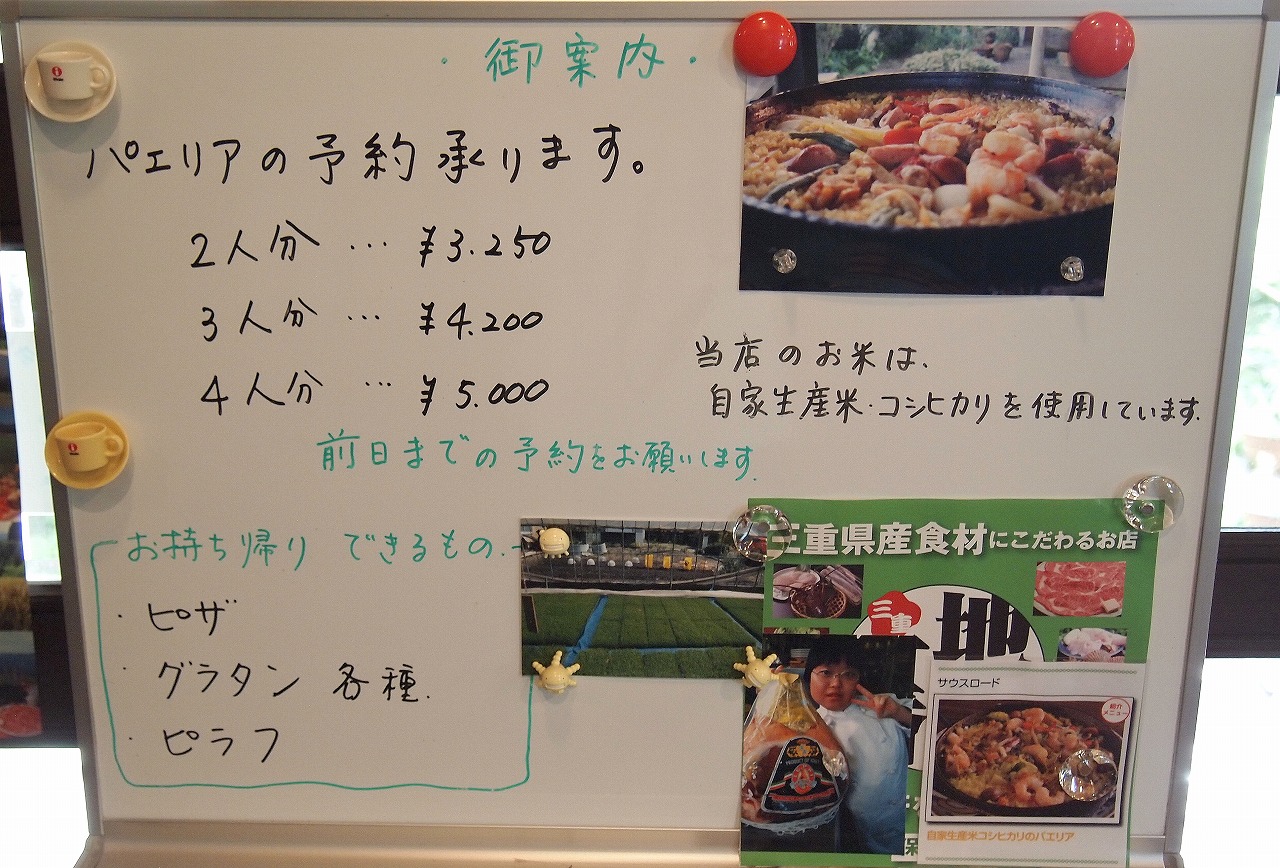 ・御案内・
パエリアの予約承ります。
2人分 … ¥3.250
3人分 … ¥4.200
4人分 … ¥5.000
前日までの予約をお願いします.
当店のお米は、
自家生産米・コシヒカリを使用しています.
お持ち帰り できるもの.
・ピザ
・グラタン 各種.
・ピラフ
三重県産食材にこだわるお店
三重
地
サウスロード
紹介
メニュー
自家生産米コシヒカリのパエリア